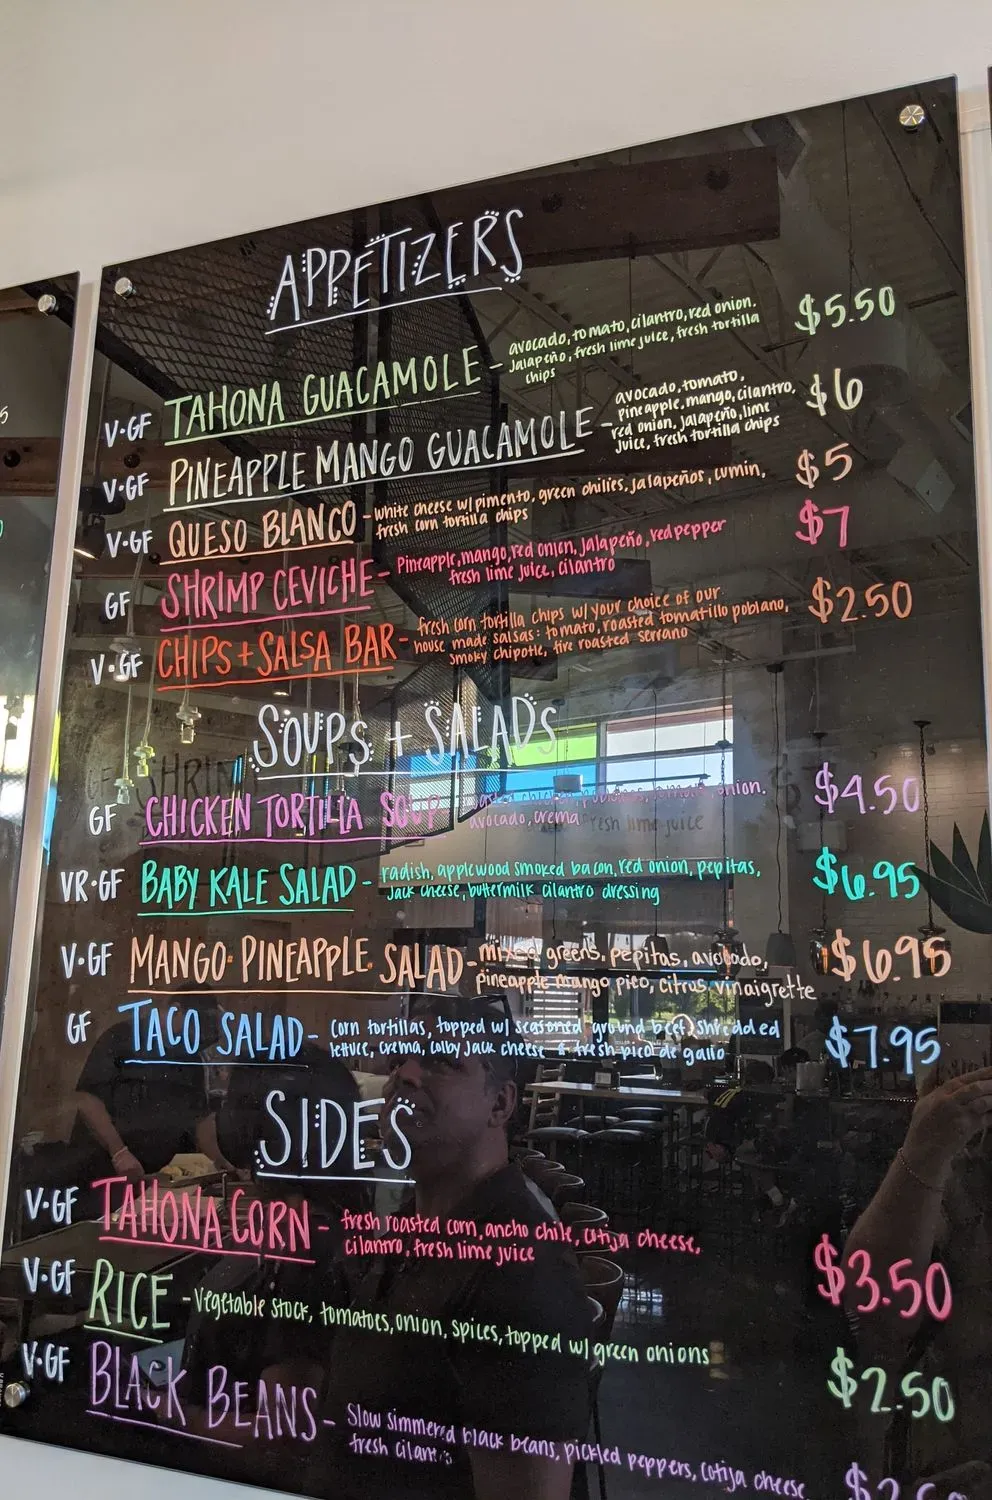 APPETIZERS
V·GF TAHONA GUACAMOLE - avocado, tomato, cilantro, red onion. $5.50
Jalapeño, fresh lime juice, fresh tortilla
chips
V·GF PINEAPPLE MANGO GUACAMOLE - avocado, tomato, $6
pineapple, mango, cilantro,
red onion, jalapeño, lime
juice, fresh tortilla chips
V·GF QUESO BLANCO - white cheese w/ pimento, green chilies, jalapeños, cumin, $5
fresh corn tortilla chips
GF SHRIMP CEVICHE - Pineapple, mango, red onion, jalapeño, red pepper $7
fresh lime juice, cilantro
V·GF CHIPS + SALSA BAR - fresh corn tortilla chips w/ your choice of our $2.50
house made salsas: tomato, roasted tomatillo poblano,
smoky chipotle, fire roasted serrano
SOUPS + SALADS
GF CHICKEN TORTILLA SOUP onion. $4.50
avocado, crema
VR·GF BABY KALE SALAD - radish, applewood smoked bacon, red onion, pepitas, $6.95
Jack cheese, buttermilk cilantro dressing
V·GF MANGO PINEAPPLE SALAD - mixed greens, pepitas, avocado, $6.95
pineapple mango pico, citrus vinaigrette
GF TACO SALAD - Corn tortillas, topped w/ seasoned ground beef, shredded $7.95
lettuce, crema, colby jack cheese & fresh pico de gallo
SIDES
V·GF TAHONA CORN - fresh roasted corn, ancho chile, cotija cheese, $3.50
cilantro, fresh lime juice
V·GF RICE - Vegetable stock, tomatoes, onion, spices, topped w/ green onions $2.50
V·GF BLACK BEANS - Slow simmered black beans, pickled peppers, cotija cheese
fresh cilantro